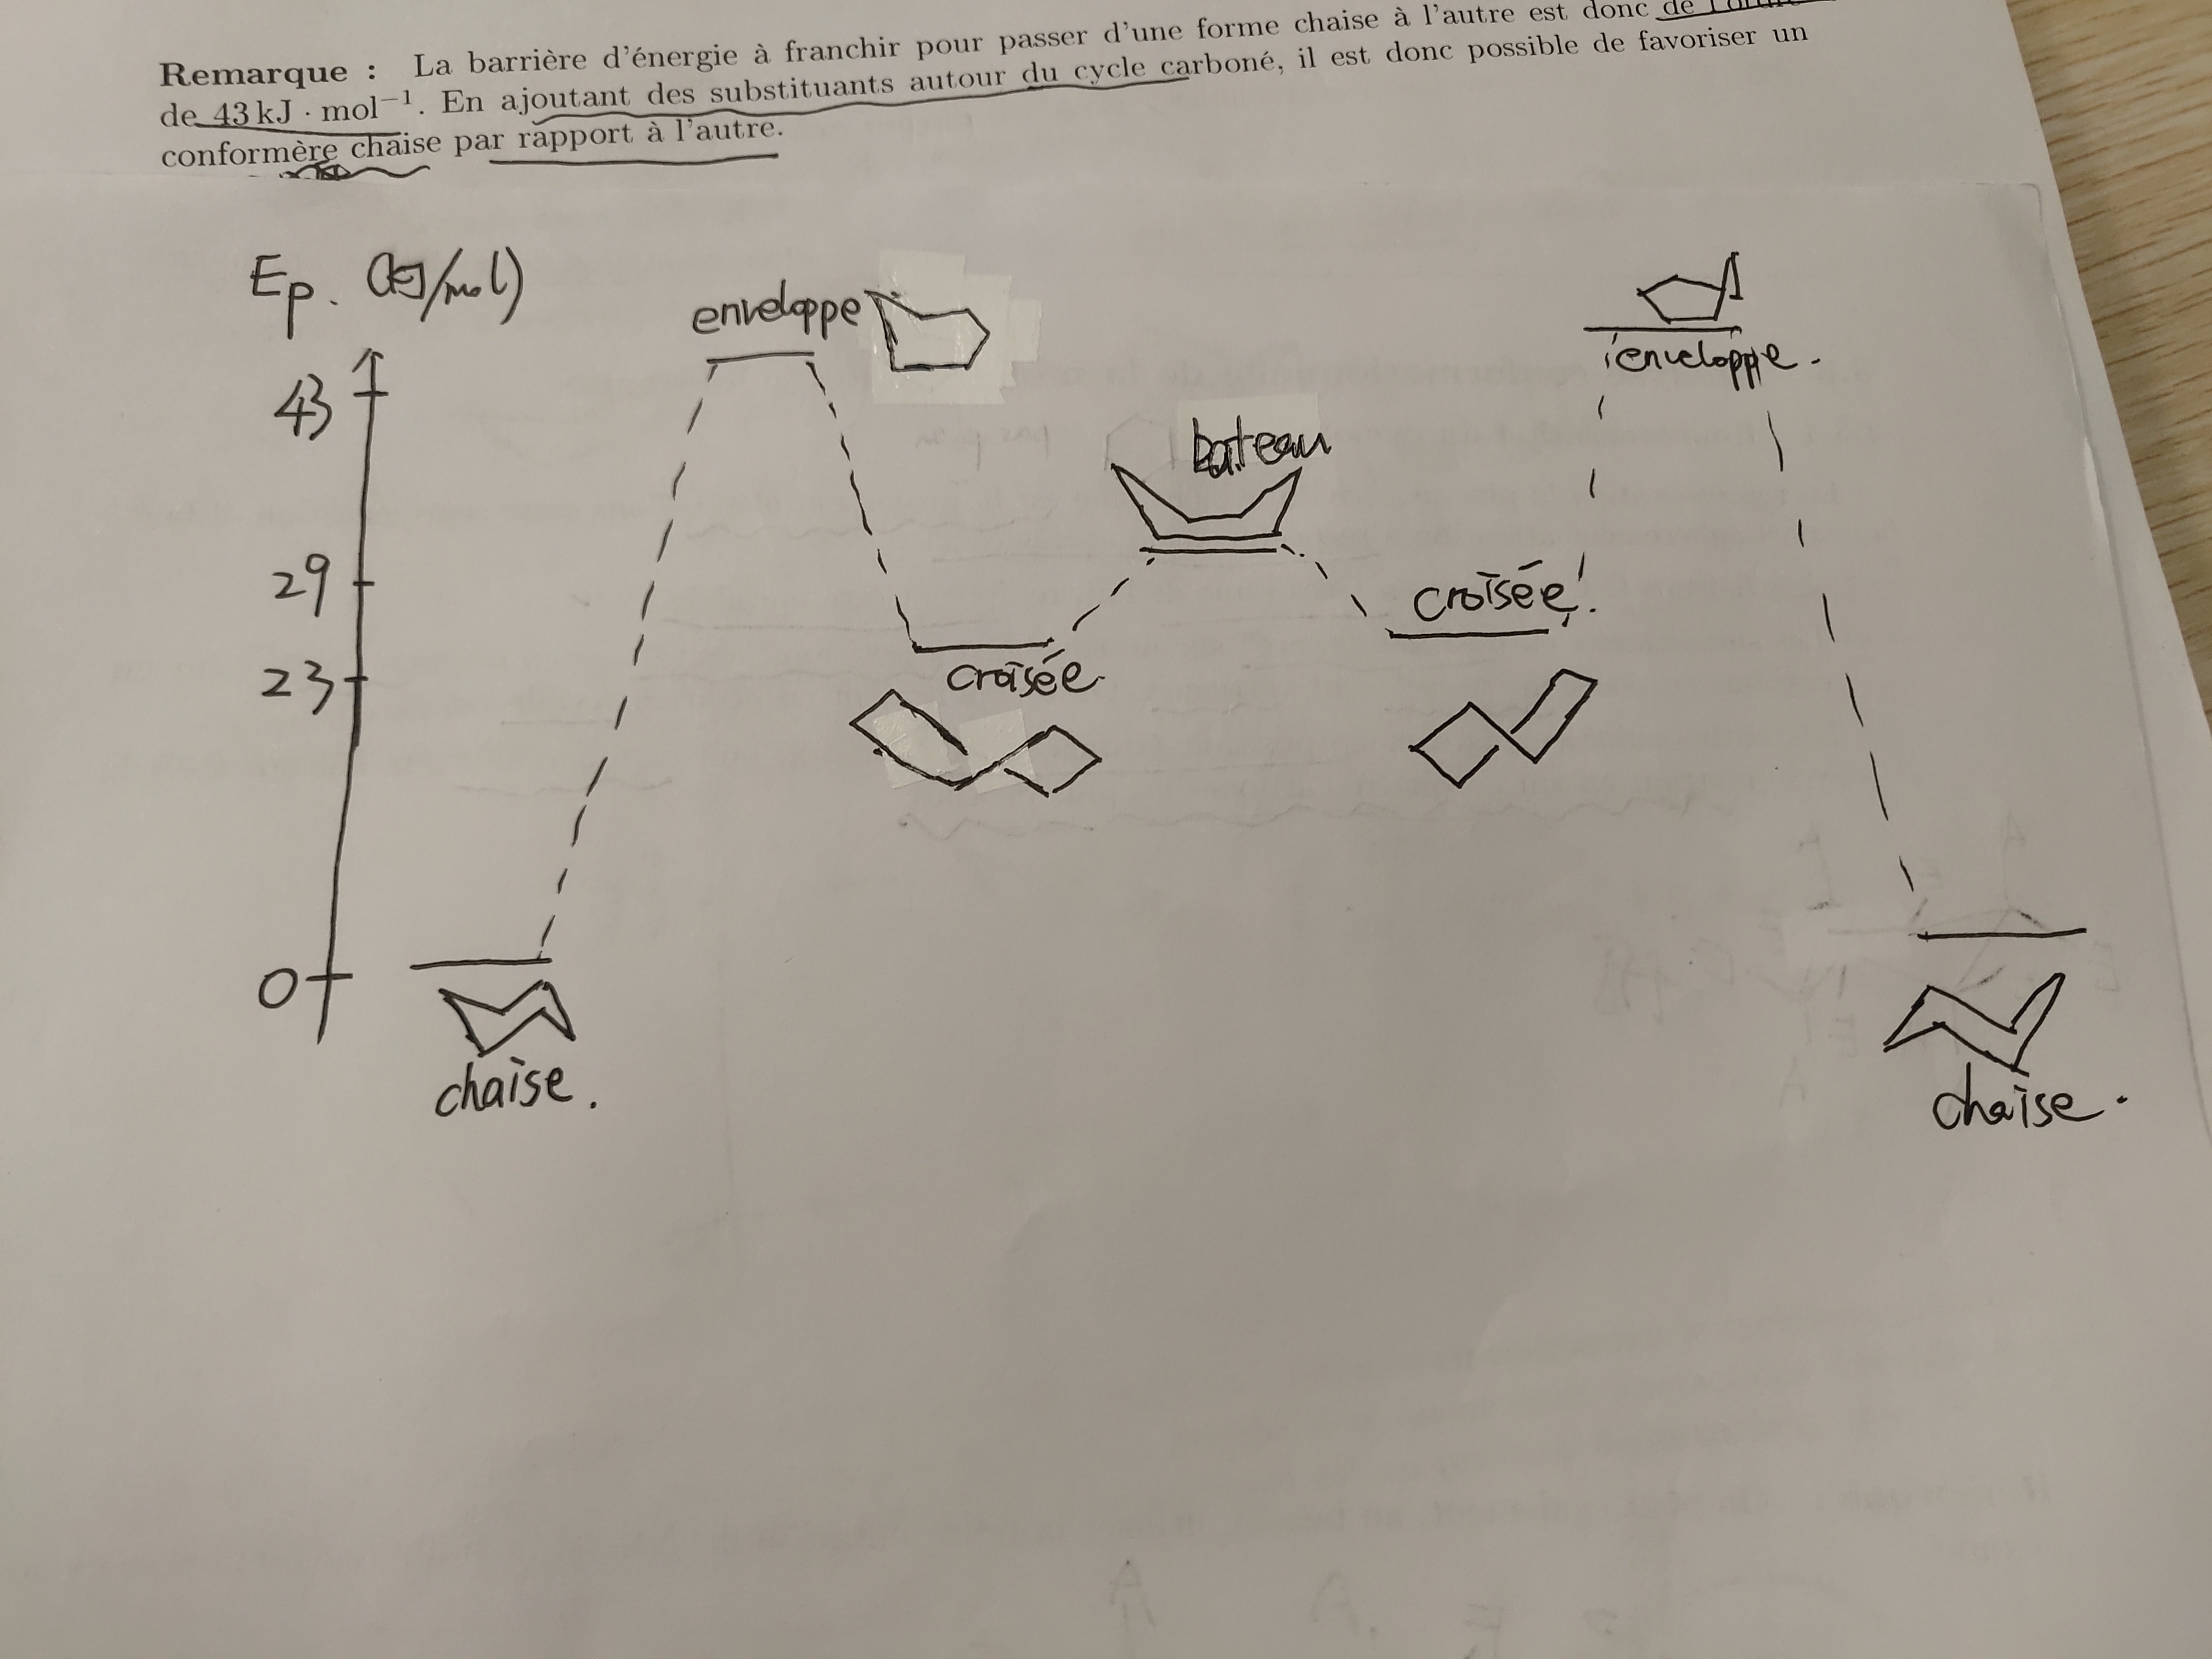 Remarque : La barrière d'énergie à franchir pour passer d'une forme chaise à l'autre est donc de l'ordre
de 43 kJ · mol⁻¹. En ajoutant des substituants autour du cycle carboné, il est donc possible de favoriser un
conformère chaise par rapport à l'autre.
Ep. (kJ/mol)
enveloppe
enveloppe.
43
bateau
29
croisée
23
croisée
0
chaise.
chaise.